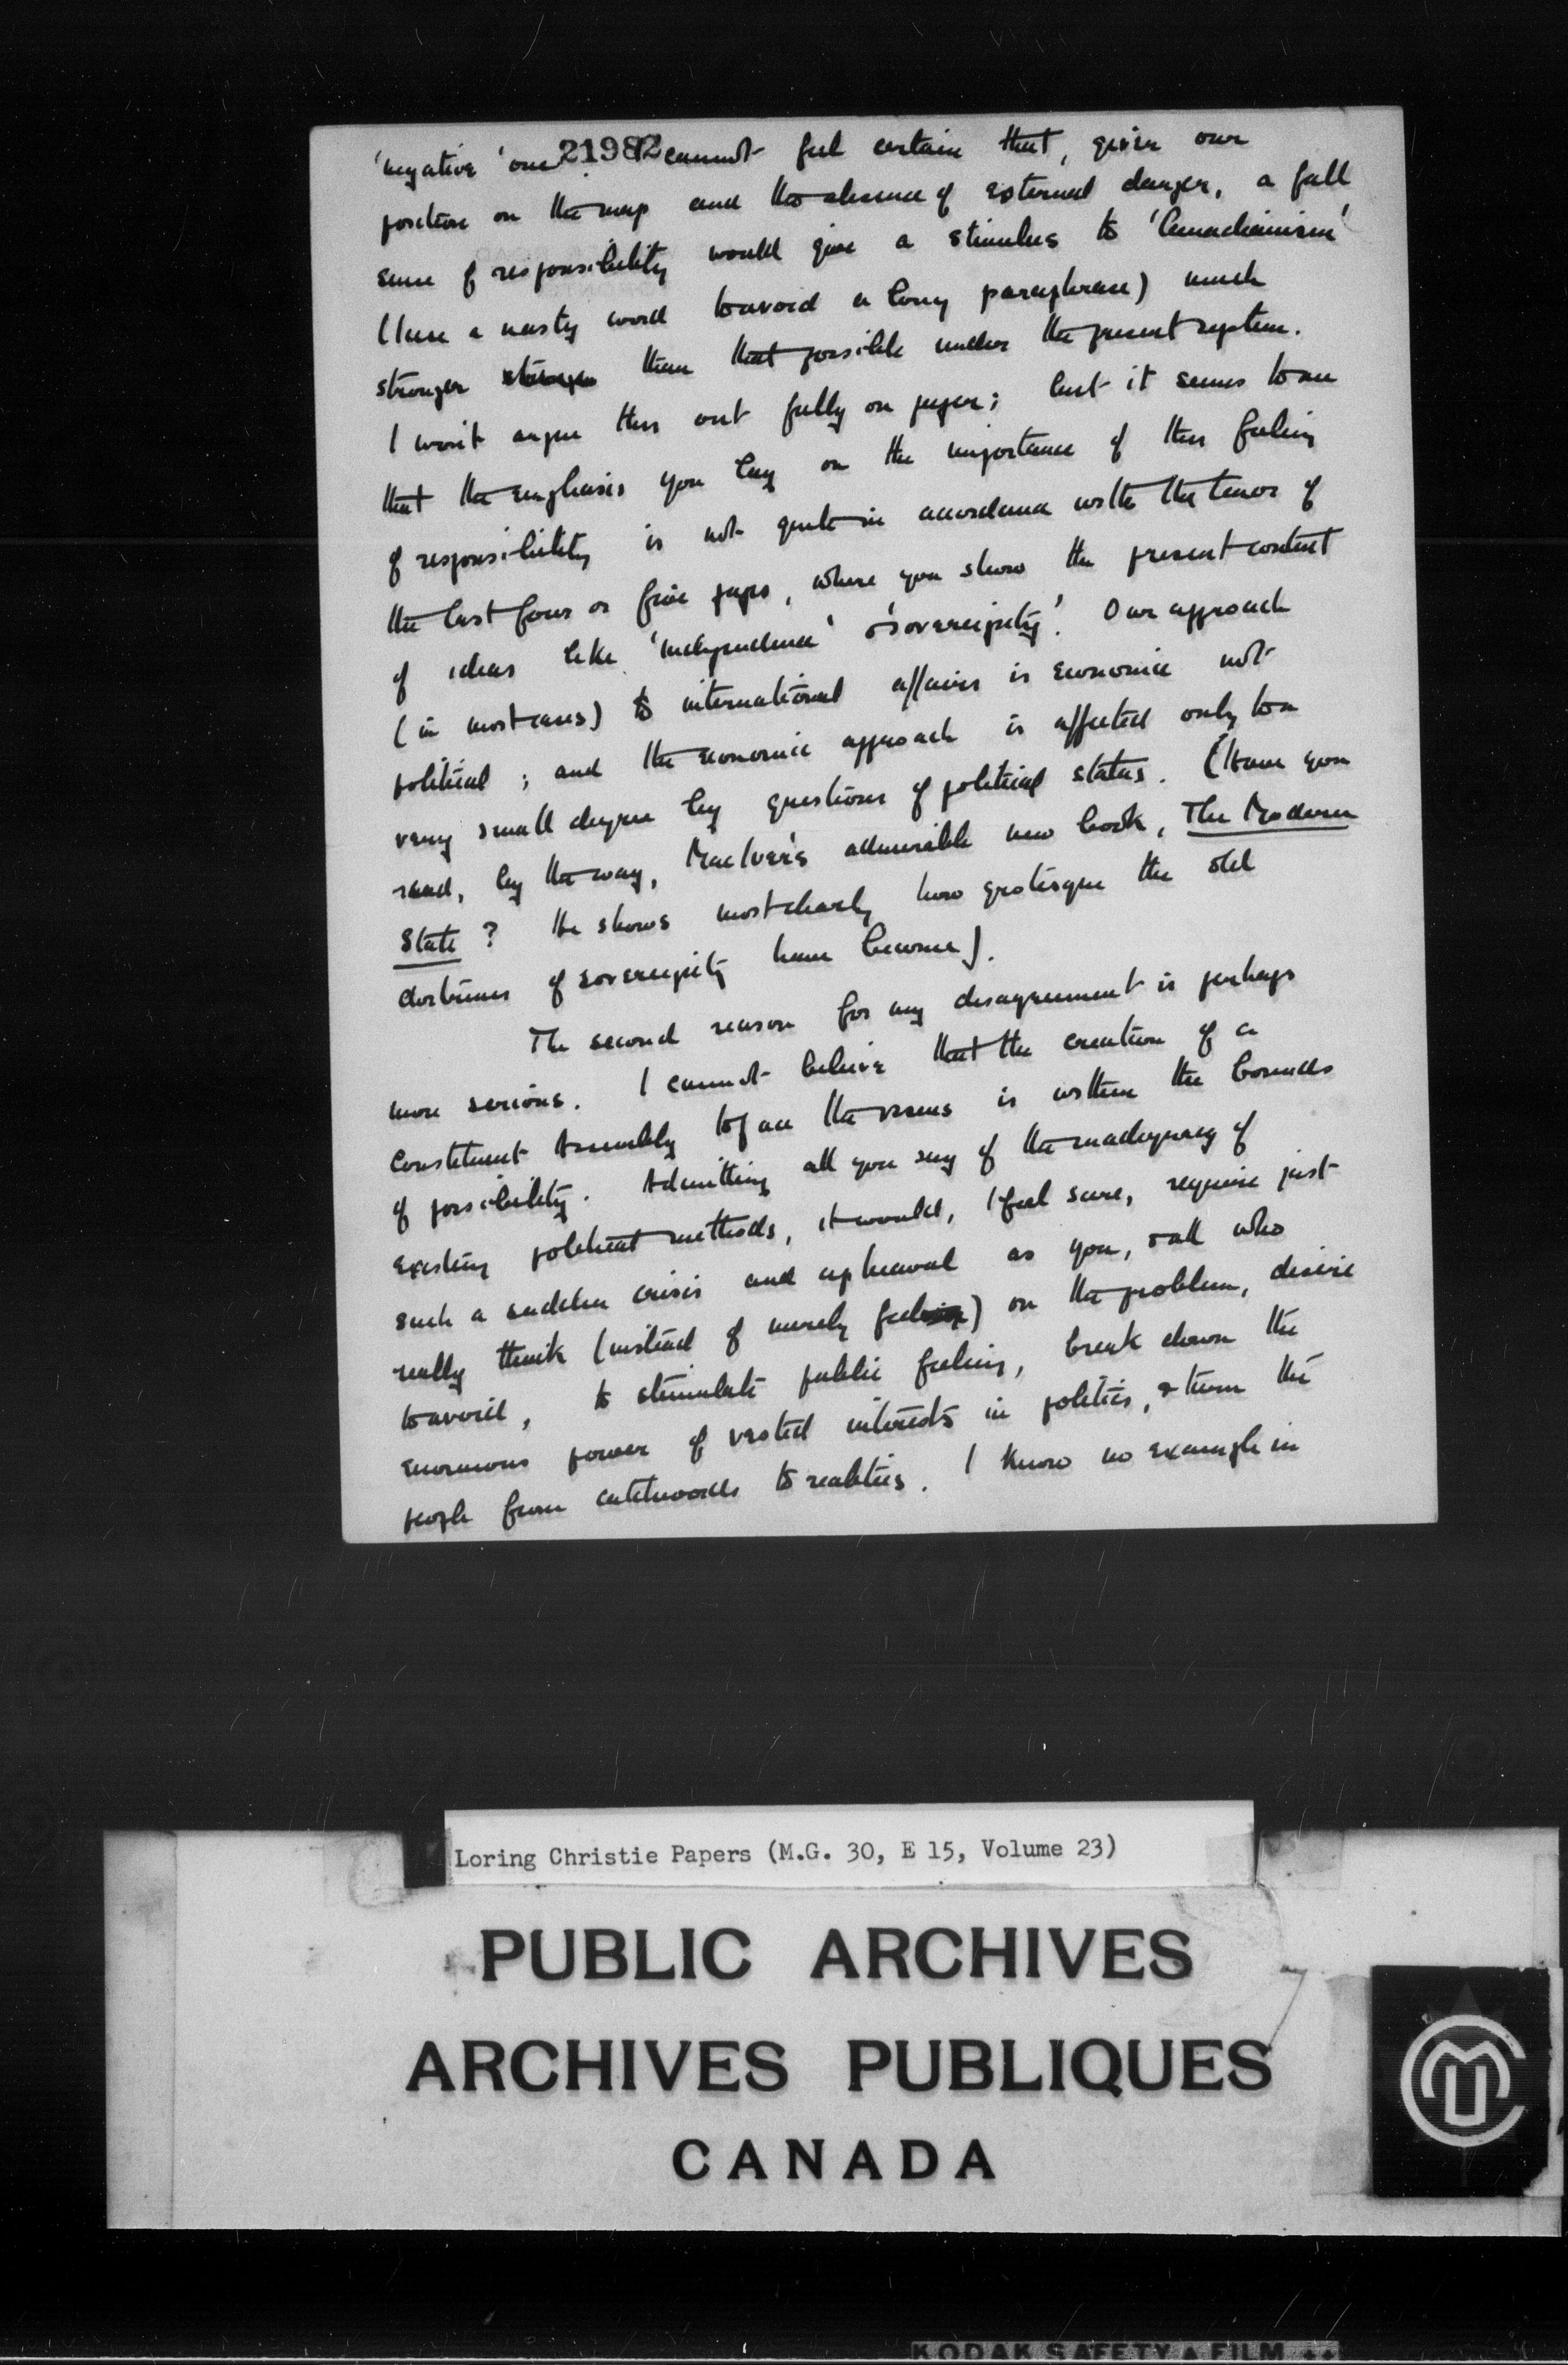 21982
'negative' one. I cannot feel certain that, given our
position on the map and the absence of external danger, a full
sense of responsibility would give a stimulus to 'Canadianism'
(I use a nasty word to avoid a long paraphrase) much
stronger than that possible under the present system.
I won't argue this out fully on paper; but it seems to me
that the emphasis you lay on the importance of this feeling
of responsibility is not quite in accordance with the tenor of
the last four or five pages, where you show the present content
of ideas like 'independence' & 'sovereignty'. Our approach
(in most cases) to international affairs is economic not
political; and the economic approach is affected only to a
very small degree by questions of political status. (Have you
read, by the way, MacIver's admirable new book, The Modern
State? He shows most clearly how grotesque the old
doctrines of sovereignty have become).
The second reason for my disagreement is perhaps
more serious. I cannot believe that the creation of a
Constituent Assembly to face the issues is within the bounds
of possibility. Admitting all you say of the inadequacy of
existing political methods, it would, I feel sure, require just
such a sudden crisis and upheaval as you, & all who
really think (instead of merely feel) on the problem, desire
to avoid, to stimulate public feeling, break down the
enormous power of vested interests in politics, & turn the
people from catchwords to realities. I know no example in
Loring Christie Papers (M.G. 30, E 15, Volume 23)
PUBLIC ARCHIVES
ARCHIVES PUBLIQUES
CANADA
KODAK SAFETY FILM